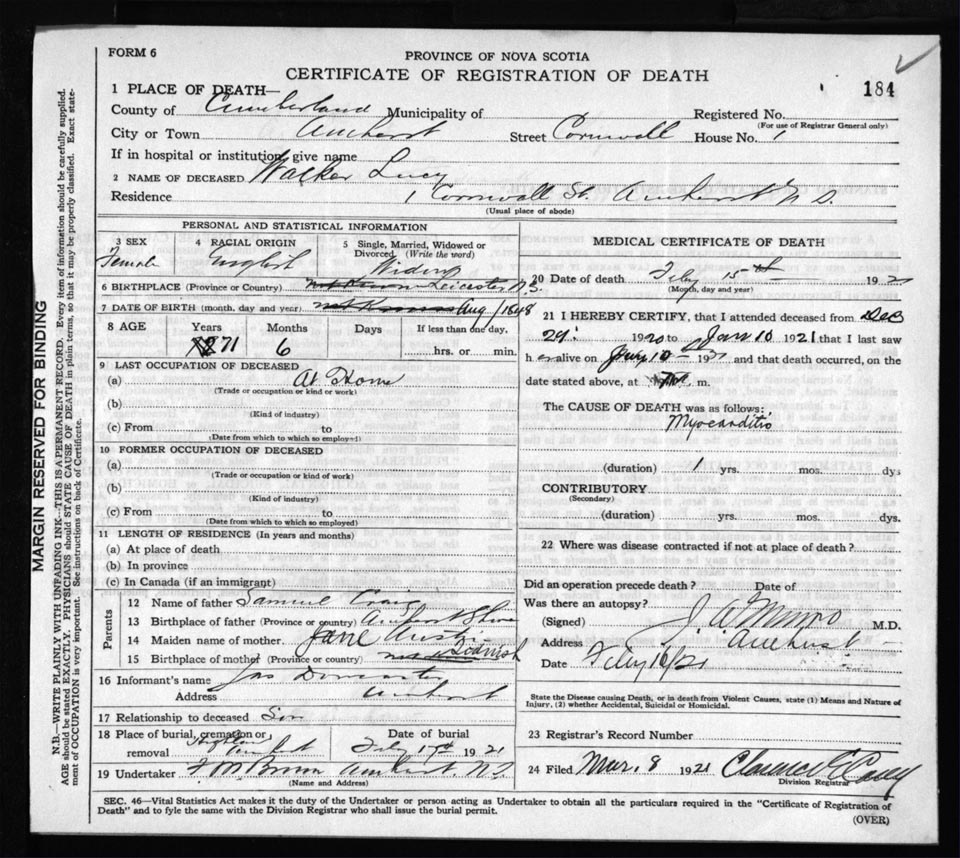 FORM 6
PROVINCE OF NOVA SCOTIA
CERTIFICATE OF REGISTRATION OF DEATH
184
1 PLACE OF DEATH—
County of Cumberland Municipality of Registered No.
(For use of Registrar General only)
City or Town Amherst Street Cornwall House No. 1
If in hospital or institution, give name
2 NAME OF DECEASED Walker Lucy
Residence 1 Cornwall St. Amherst N.S.
(Usual place of abode)
PERSONAL AND STATISTICAL INFORMATION
3 SEX 4 RACIAL ORIGIN 5 Single, Married, Widowed or Divorced (Write the word)
Female English Widow
6 BIRTHPLACE (Province or Country) not Known Leicester, N.S.
7 DATE OF BIRTH (month, day and year) not Known Aug / 1848
8 AGE Years Months Days If less than one day,
71 6 hrs. or min.
9 LAST OCCUPATION OF DECEASED
(a) At Home
(Trade or occupation or kind or work)
(b)
(Kind of industry)
(c) From to
(Date from which to which so employed)
10 FORMER OCCUPATION OF DECEASED
(a)
(Trade or occupation or kind of work)
(b)
(Kind of industry)
(c) From to
(Date from which to which so employed)
11 LENGTH OF RESIDENCE (In years and months)
(a) At place of death
(b) In province
(c) In Canada (if an immigrant)
Parents
12 Name of father Samuel Craig
13 Birthplace of father (Province or country) Amherst Shore
14 Maiden name of mother Jane
15 Birthplace of mother (Province or country) Tidnish
16 Informant's name Jas
Address Amherst
17 Relationship to deceased Son
18 Place of burial, cremation or removal Highland Date of burial Feby 17th 1921
19 Undertaker F. M. Brown Amherst. N.S.
(Name and Address)
MEDICAL CERTIFICATE OF DEATH
20 Date of death Feby 15th 1921
(Month, day and year)
21 I HEREBY CERTIFY, that I attended deceased from Dec
29. 1920 to Jan 10 1921 that I last saw
h er alive on Jany 10th 1921 and that death occurred, on the
date stated above, at m.
The CAUSE OF DEATH was as follows:
Myocarditis
(duration) 1 yrs. mos. dys
CONTRIBUTORY
(Secondary)
(duration) yrs. mos. dys.
22 Where was disease contracted if not at place of death?
Did an operation precede death? Date of
Was there an autopsy?
(Signed) J. A. Munro M.D.
Address Amherst
Date Feby 16/21
State the Disease causing Death, or in death from Violent Causes, state (1) Means and Nature of
Injury, (2) whether Accidental, Suicidal or Homicidal.
23 Registrar's Record Number
24 Filed Mar. 8 1921 Clarence E Casey
Division Registrar
SEC. 46—Vital Statistics Act makes it the duty of the Undertaker or person acting as Undertaker to obtain all the particulars required in the "Certificate of Registration of
Death" and to fyle the same with the Division Registrar who shall issue the burial permit.
(OVER)
MARGIN RESERVED FOR BINDING
N.B.—WRITE PLAINLY WITH UNFADING INK—THIS IS A PERMANENT RECORD. Every item of information should be carefully supplied.
AGE should be stated EXACTLY. PHYSICIANS should STATE CAUSE OF DEATH in plain terms, so that it may be properly classified. Exact statement
of OCCUPATION is very important. See instructions on back of Certificate.